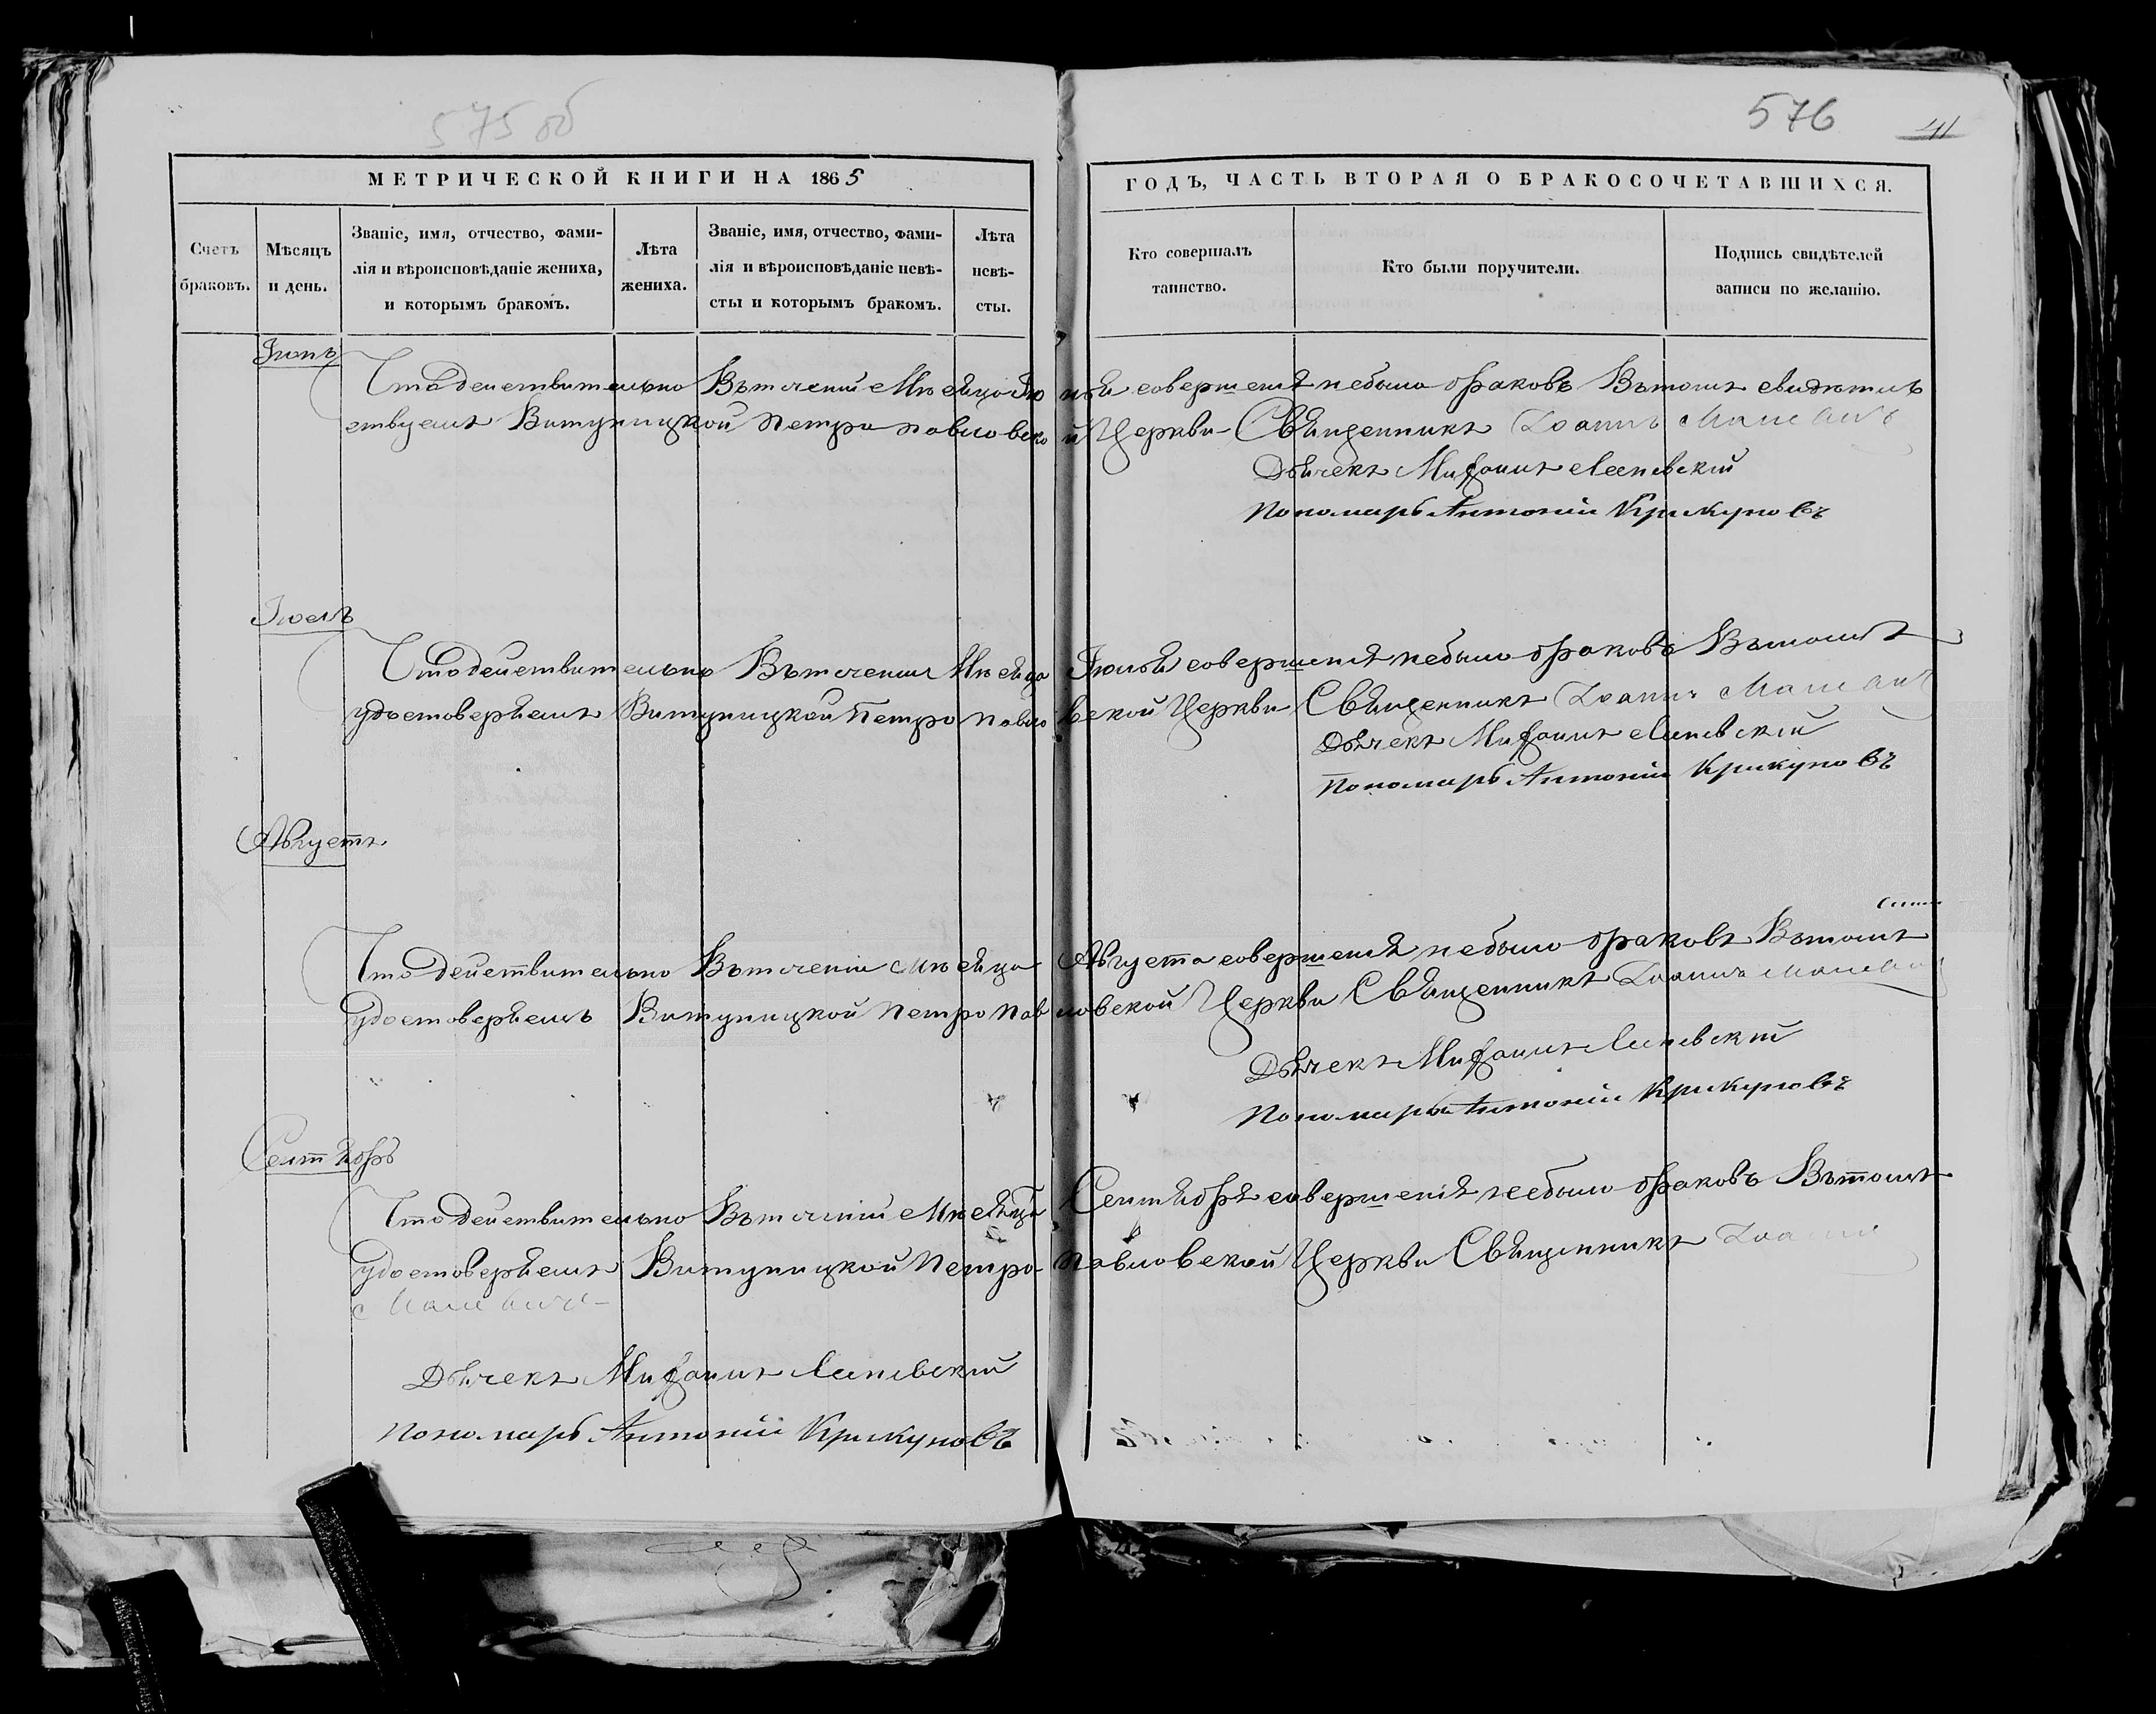 575 об
576
41
МЕТРИЧЕСКОЙ КНИГИ НА 1865
ГОДЪ, ЧАСТЬ ВТОРАЯ О БРАКОСОЧЕТАВШИХСЯ.
Счетъ браковъ.
Мѣсяцъ и день.
Званіе, имя, отчество, фами-
лія и вѣроисповѣданіе жениха,
и которымъ бракомъ.
Лѣта
жениха.
Званіе, имя, отчество, фами-
лія и вѣроисповѣданіе невѣ-
сты и которымъ бракомъ.
Лѣта
невѣ-
сты.
Кто совершалъ
таинство.
Кто были поручители.
Подпись свидѣтелей
записи по желанію.
Іюнь
Что действительно Въ теченіи Мѣсяца Іюня совершенія небыло браковъ Въ томъ свидѣтель
ствуемъ Витуницкой Петро павловской Церкви Священникъ Іоаннъ
Дьячекъ Мифоній
Пономарь Антоній Крикуновъ
Іюль
Что действительно Въ теченіи Мѣсяца Іюля совершенія небыло браковъ Въ томъ
удостоверяемъ Витуницкой Петро павловской Церкви Священникъ Іоаннъ
Дьячекъ
Пономарь Антоній Крикуновъ
Августъ
Что действительно Въ теченіи мѣсяца Августа совершенія небыло браковъ Въ томъ
удостоверяемъ Витуницкой Петро павловской Церкви Священникъ Іоаннъ
Дьячекъ
Пономарь Антоній Крикуновъ
Сентябрь
Что действительно Въ теченіи Мѣсяца Сентября совершенія небыло браковъ Въ томъ
удостоверяемъ Витуницкой Петро-павловской Церкви Священникъ Іоаннъ
Дьячекъ
Пономарь Антоній Крикуновъ